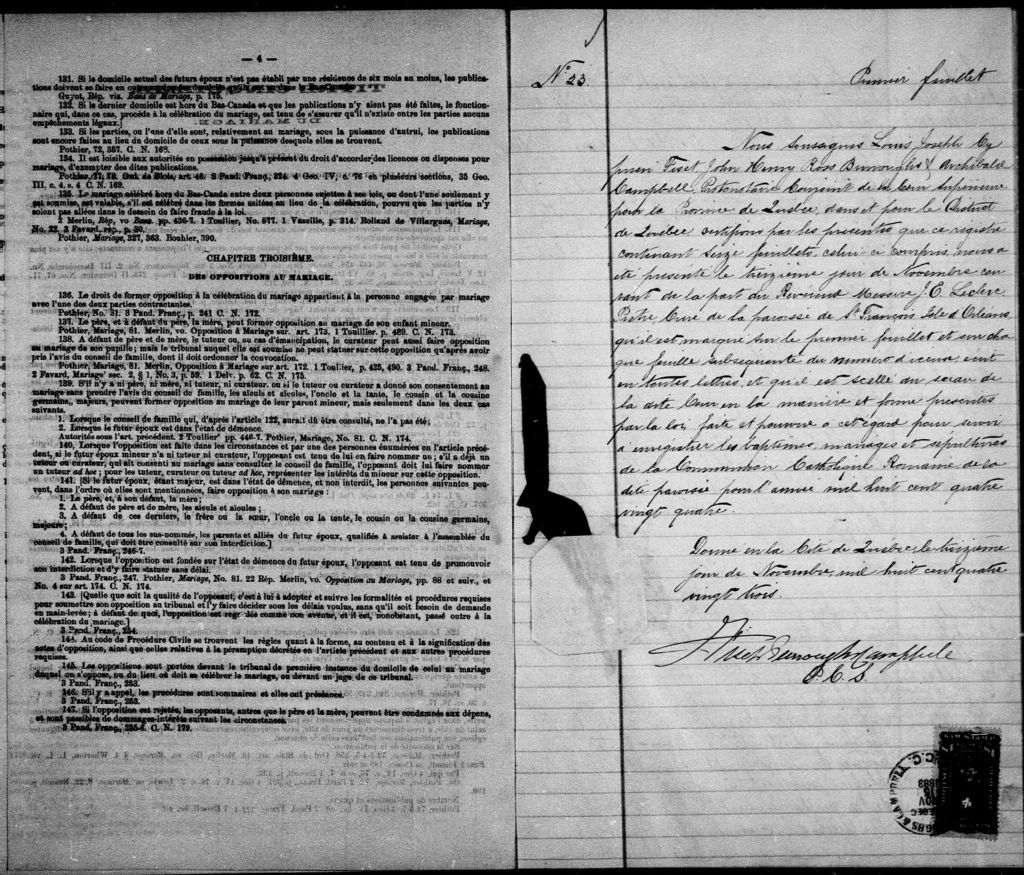 — 4 —
131. Si le domicile actuel des futurs époux n'est pas établi par une résidence de six mois au moins, les publica-
tions doivent se faire en
Guyot, Rép. vis. Bans de Mariage, p. 175.
132. Si le dernier domicile est hors du Bas-Canada et que les publications n'y aient pas été faites, le fonction-
naire qui, dans ce cas, procède à la célébration du mariage, est tenu de s'assurer qu'il n'existe entre les parties aucuns
empêchements légaux.]
133. Si les parties, ou l'une d'elle sont, relativement au mariage, sous la puissance d'autrui, les publications
sont encore faites au lieu du domicile de ceux sous la puissance desquels elles se trouvent.
Pothier, 72, 357. C. N. 168.
134. Il est loisible aux autorités en possession jusqu'à présent du droit d'accorder des licences ou dispenses pour
mariage, d'exempter des dites publications.
Pothier, 77, 78. Ord. de Blois, art. 40. 3 Pand. Franç., 324. 4 Geo. IV, c. 76 en plusieurs sections, 35 Geo.
III, c. 4, s. 4 C. N. 169.
135. Le mariage célébré hors du Bas-Canda entre deux personnes sujettes à ses lois, ou dont l'une seulement y
est soumise, est valable, s'il est célébré dans les formes usitées au lieu de la célébration, pourvu que les parties n'y
soient pas allées dans le dessein de faire fraude à la loi.
2 Merlin, Rép, vo Bans, pp. 436-7. 1 Toullier, No. 577. 1 Vazeille, p. 314. Rolland de Villargues, Mariage,
No. 23, 3 Favard, rép., p. 30.
Pothier, Mariage, 327, 363. Bouhier, 390.
CHAPITRE TROISIÈME.
DES OPPOSITIONS AU MARIAGE.
136. Le droit de former opposition à la célébration du mariage appartient à la personne engagée par mariage
avec l'une des deux parties contractantes.
Pothier, No. 31. 3 Pand. Franç., p. 241 C. N. 172.
137. Le père, et à défaut du père, la mère, peut former opposition au mariage de son enfant mineur.
Pothier, Mariage, 81. Merlin, vo. Opposition au Mariage sur. art. 173, 1 Touillier. p. 489. C. N. 173.
138. A défaut de père et de mère, le tuteur ou, au cas d'émancipation, le curateur peut aussi faire opposition
au mariage de son pupille; mais le tribunal auquel elle est soumise ne peut statuer sur cette opposition qu'après avoir
pris l'avis du conseil de famille, dont il doit ordonner la convocation.
Pothier, Mariage, 81. Merlin, Opposition à Mariage sur art. 172. 1 Touillier, p. 425, 490. 3 Pand. Franç., 248.
2 Favard, Mariage sec. 2, § 1, No. 3, n. 59. 1 Delv. p. 62. C. N. 175.
139. S'il n'y a ni père, ni mère, ni tuteur, ni curateur, ou si le tuteur ou curateur a donné son consentement au
mariage sans prendre l'avis du conseil de famille, les aieuls et aieules, l'oncle et la tante, le cousin et la cousine
germains, majeurs, peuvent former opposition au mariage de leur parent mineur, mais seulement dans les deux cas
suivants.
1. Lorsque le conseil de famille qui, d'après l'article 122, aurait dû être consulté, ne l'a pas été;
2. Lorsque le futur époux est dans l'état de démence.
Autorités sous l'art. précédent. 2 Toullier pp. 446-7. Pothier, Mariage, No. 81. C. N. 174.
140. Lorsque l'opposition est faite dans les circonstances et par une des personnes énumérées en l'article précé-
dent, si le futur époux mineur n'a ni tuteur ni curateur, l'opposant est tenu de lui en faire nommer un; s'il a déjà un
tuteur ou curateur, qui ait consenti au mariage sans consulter le conseil de famille, l'opposant doit lui faire nommer
un tuteur ad hoc; pour les tuteur, curateur ou tuteur ad hoc, représenter les intérêts du mineur sur cette opposition.
141. [Si le futur époux, étant majeur, est dans l'état de démence, et non interdit, les personnes suivantes peu-
vent, dans l'ordre où elles sont mentionnées, faire opposition à son mariage:
1. Le père, et, à son défaut, la mère;
2. A défaut de père et de mère, les aieuls et aieules;
3. A défaut de ces derniers, le frère ou la sœur, l'oncle ou la tante, le cousin ou la cousine germains,
majeurs;
4. A défaut de tous les sus-nommés, les parents et alliés du futur époux, qualifiés à assister à l'assemblée du
conseil de famille, qui doit être consulté sur son interdiction.]
3 Pand. Franç., 246-7.
142. Lorsque l'opposition est fondée sur l'état de démence du futur époux, l'opposant est tenu de promouvoir
son interdiction et d'y faire statuer sans délai.
3 Pand. Franç., 247. Pothier, Mariage, No. 81. 22 Rép. Merlin, vo. Opposition au Mariage, pp. 88 et suiv., et
No. 4 sur art. 174. C. N. 174.
143. [Quelque soit la qualité de l'opposant, c'est à lui à adopter et suivre les formalités et procédures requises
pour soumettre son opposition au tribunal et l'y faire décider sous les délais voulus, sans qu'il soit besoin de demande
en main-levée; à défaut de quoi, l'opposition est regardée comme non avenue, et il est, nonobstant, passé outre à la
célébration du mariage.]
3 Pand. Franç., 254.
144. Au code de Procédure Civile se trouvent les règles quant à la forme, au contenu et à la signification des
actes d'opposition, ainsi que celles relatives à la péremption décrétée en l'article précédent et aux autres procédures
requises.
145. Les oppositions sont portées devant le tribunal de première instance du domicile de celui au mariage
duquel on s'oppose, ou du lieu où doit se célébrer le mariage, ou devant un juge de ce tribunal.
3 Pand. Franç., 253.
146. S'il y a appel, les procédures sont sommaires et elles ont préséance.
3 Pand. Franç., 253.
147. Si l'opposition est rejetée, les opposants, autres que le père et la mère, peuvent être condamnés aux dépens,
et sont passibles de dommages-intérêts suivant les circonstances.
3 Pand. Franç., C. N. 179.
No 23
Premier feuillet
Nous soussignés Louis Joseph Cy
prien Fiset, John Henry Ross Burroughs & Archibald
Campbell, Protonotaire Conjoint de la Cour Supérieure
pour la Province de Québec, dans et pour le District
de Québec, certifions par les présentes que ce registre
contenant seize feuillets, celui ci compris, nous a
été présenté le treizième jour de Novembre cou
rant de la part du Révérend Messire J. E. Leclerc
Prêtre, Curé de la paroisse de St François Isle d'Orléans
qu'il est marqué sur le premier feuillet et sur cha
que feuille subséquente du numéro d'icelui, écrit
en toutes lettres, et qu'il est scellé du sceau de
la dite Cour en la manière et forme présentes
par la loi faite et pourvue à cet égard pour servir
à enregistrer les baptêmes, mariages et sépultures
de la Communion Catholique Romaine de la
dite paroisse pour l'année mil huit cent quatre
vingt quatre.
Donné en la Cité de Québec le treizième
jour de Novembre, mil huit cent quatre
vingt trois.
Fiset Burroughs Campbell
P. C. S
GHS & CAMPBELL P.C.C.
NOV
1883